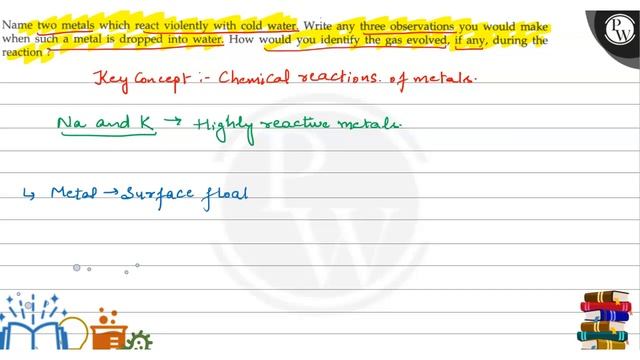 Name two metals which react violently with cold water. Write any three observations you would make
when such a metal is dropped into water. How would you identify the gas evolved, if any, during the
reaction ?
Key Concept :- Chemical reactions of metals.
Na and K → Highly reactive metals.
↳ Metal → Surface float
P
W
P
W